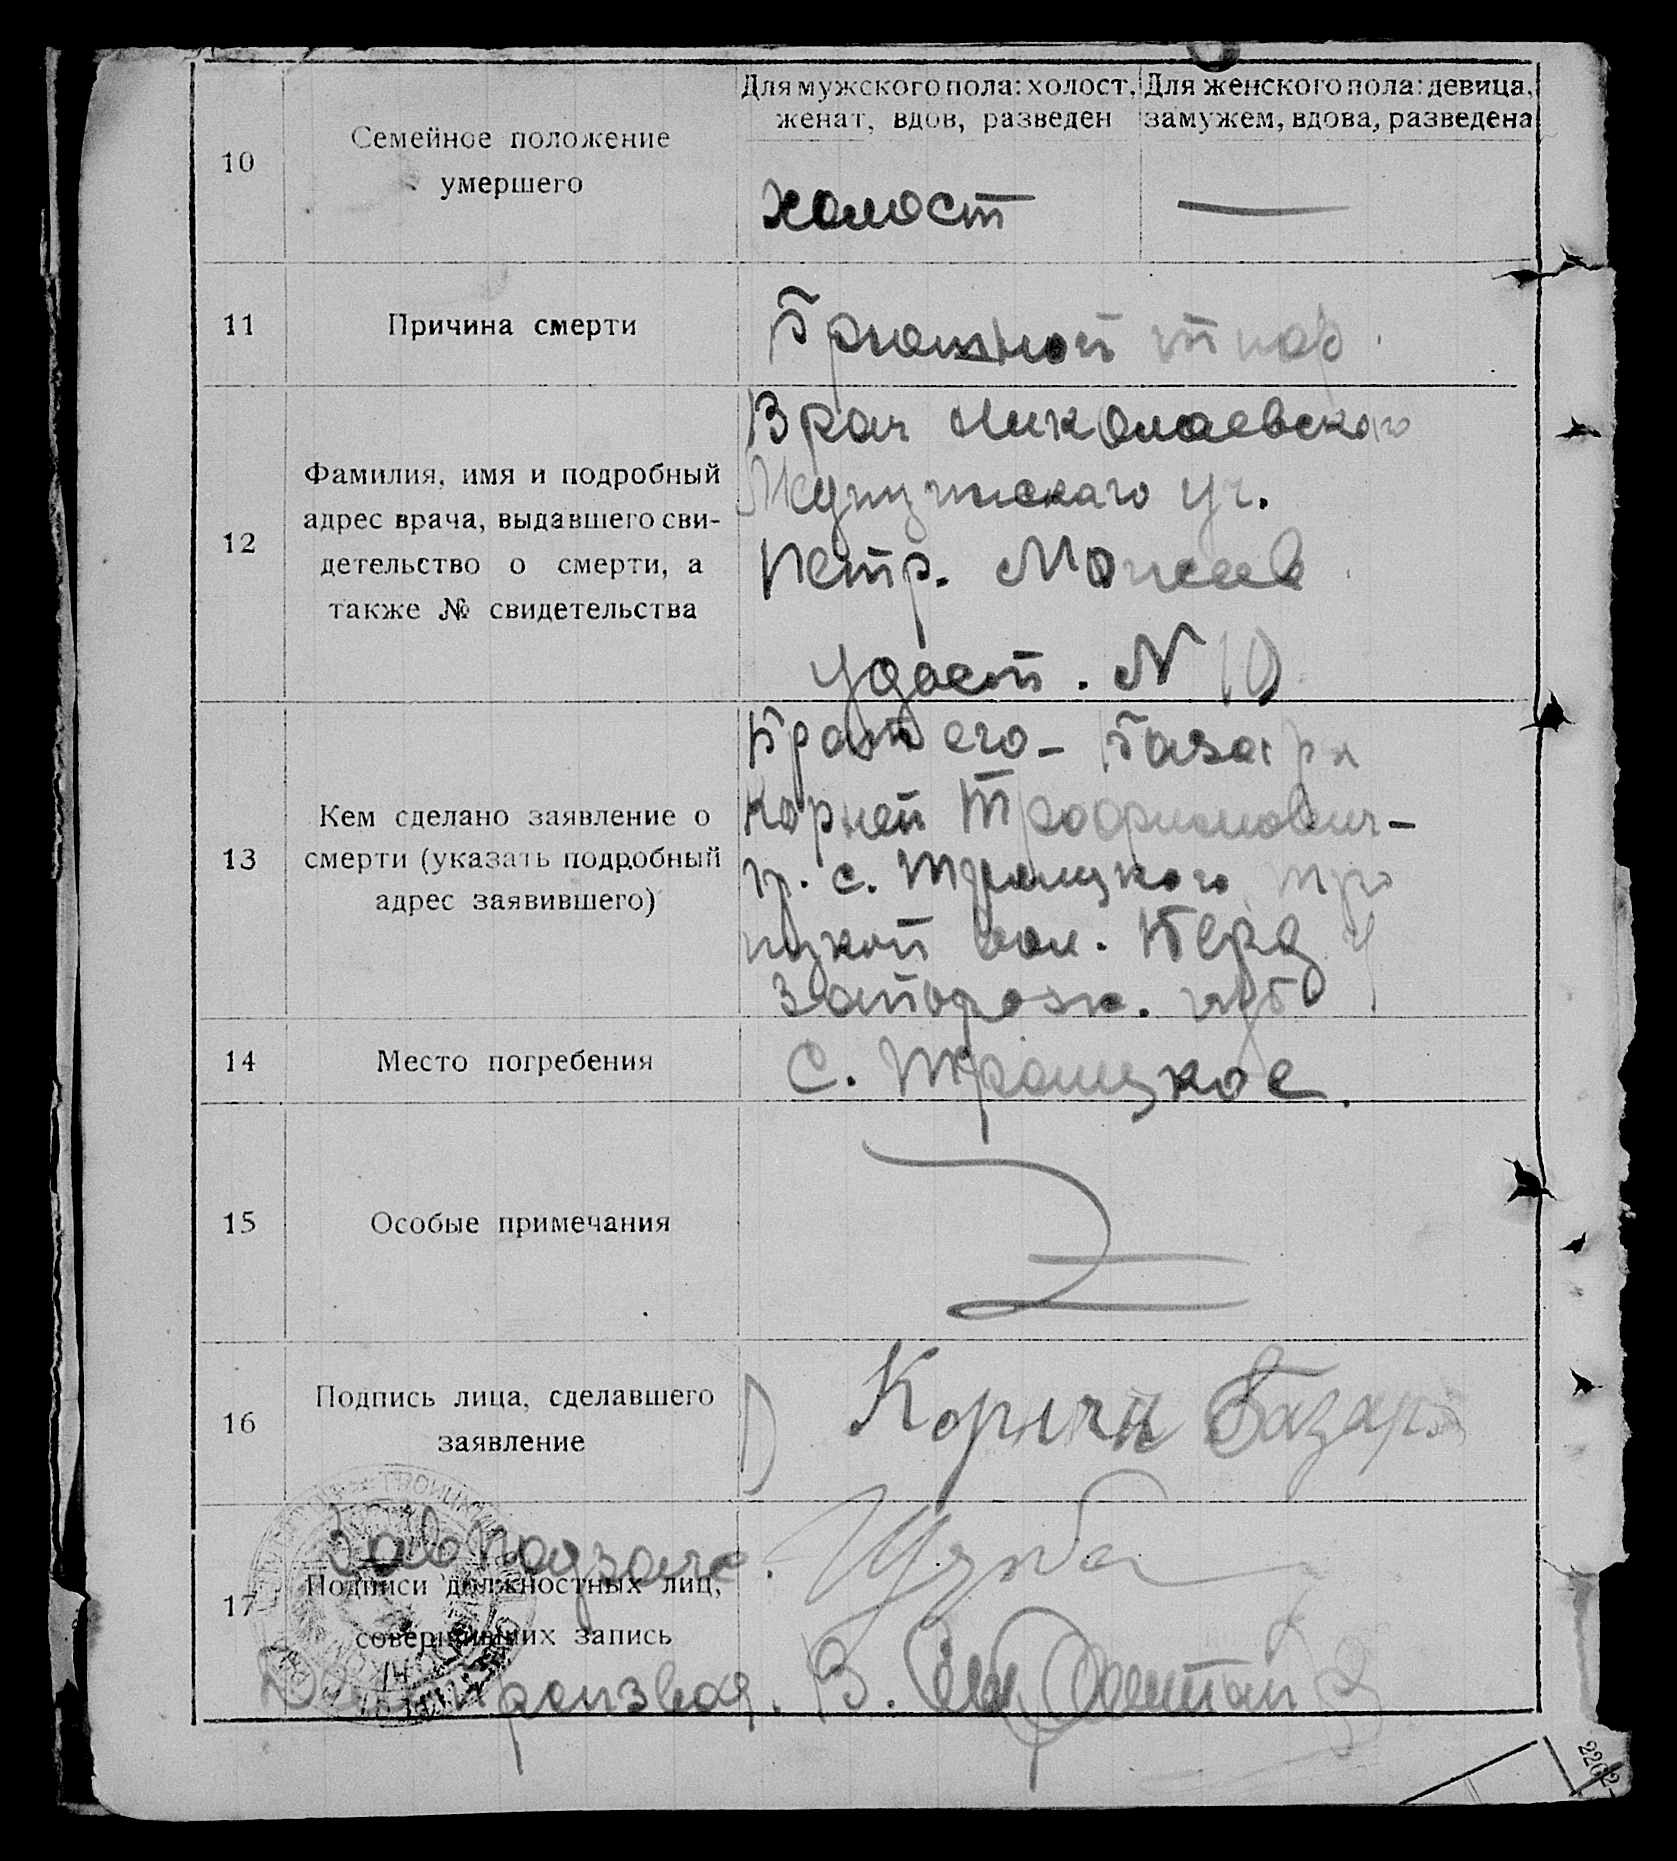 Для мужского пола: холост, женат, вдов, разведен
Для женского пола: девица, замужем, вдова, разведена
10
Семейное положение
умершего
холост
—
11
Причина смерти
Брюшной тиф.
12
Фамилия, имя и подробный
адрес врача, выдавшего сви-
детельство о смерти, а
также № свидетельства
Врач Николаевского
уч.
Петр. Моисеев
удост. N 10
13
Кем сделано заявление о
смерти (указать подробный
адрес заявившего)
Брат его - Базары
Корней Трофимович -
гр. с. Троицкого Тро
ицкой вол. Берд у
Запорож. губ
14
Место погребения
с. Троицкое.
15
Особые примечания
16
Подпись лица, сделавшего
заявление
Корней Базар
17
Подписи должностных лиц,
совершивших запись
Зав
Делопроизвод. В.
2262